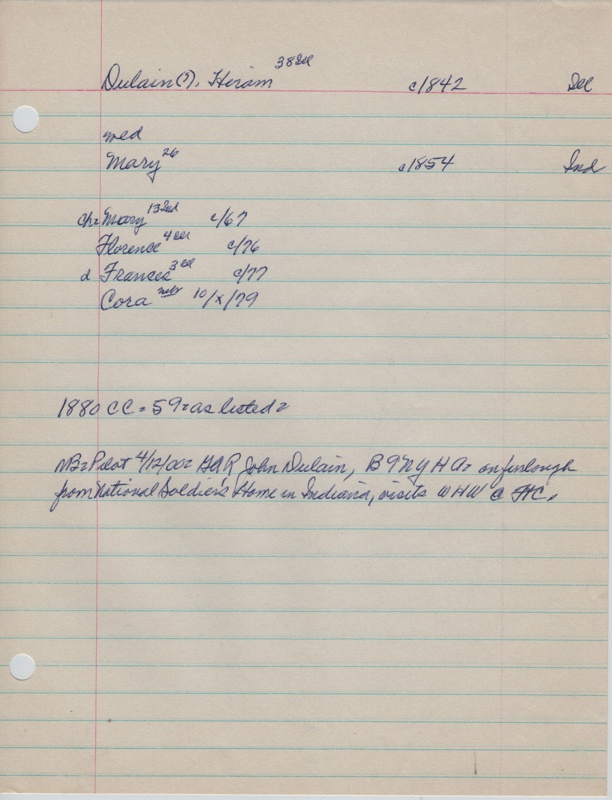 Dulain(?), Hiram 38 Del c1842 Del
wed
Mary 26 c1854 Ind
ch= Mary 13 Del c/67
Florence 4 c/76
d Frances 3 c/77
Cora 10/x/79
1880 CC = 59 = as listed =
NB = Pilot 4/12/00 = GAR John Dulain, B 9 NY HA = on furlough
from National Soldier's Home in Indiana, visits WHW @ HC.